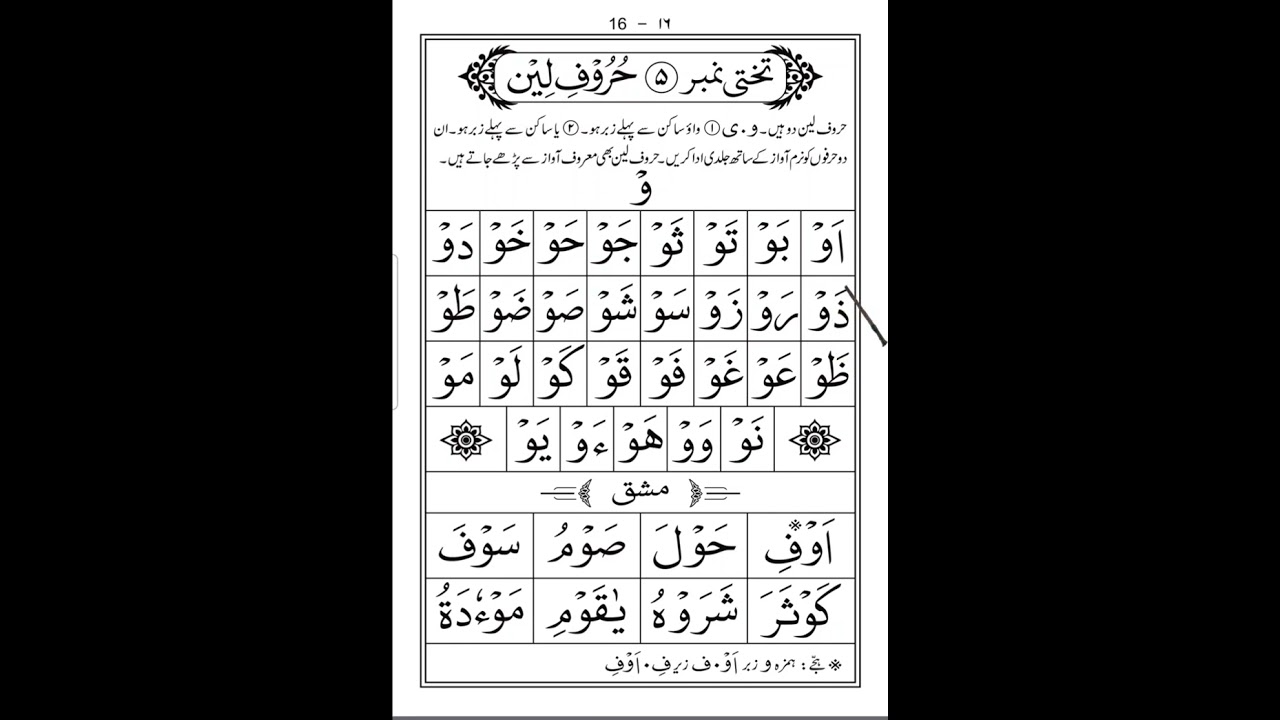 16 – ١٦
تختی نمبر ۵ حُرُوْفِ لِیْن
حروف لین دو ہیں۔ و، ی ① واؤ ساکن سے پہلے زبر ہو۔ ② یا ساکن سے پہلے زبر ہو۔ ان
دو حرفوں کو نرم آواز کے ساتھ جلدی ادا کریں۔ حروف لین بھی معروف آواز سے پڑھے جاتے ہیں۔
وْ
اَوْ بَوْ تَوْ ثَوْ جَوْ حَوْ خَوْ دَوْ
ذَوْ رَوْ زَوْ سَوْ شَوْ صَوْ ضَوْ طَوْ
ظَوْ عَوْ غَوْ فَوْ قَوْ كَوْ لَوْ مَوْ
نَوْ وَوْ هَوْ ءَوْ يَوْ
مشق
اَوْفِ※ حَوْلَ صَوْمُ سَوْفَ
كَوْثَرَ شَرَوْهُ يٰقَوْمِ مَوْءٗدَةُ
※ ہجّے: ہمزہ و زبر اَوْ، ف زیر فِ، اَوْفِ